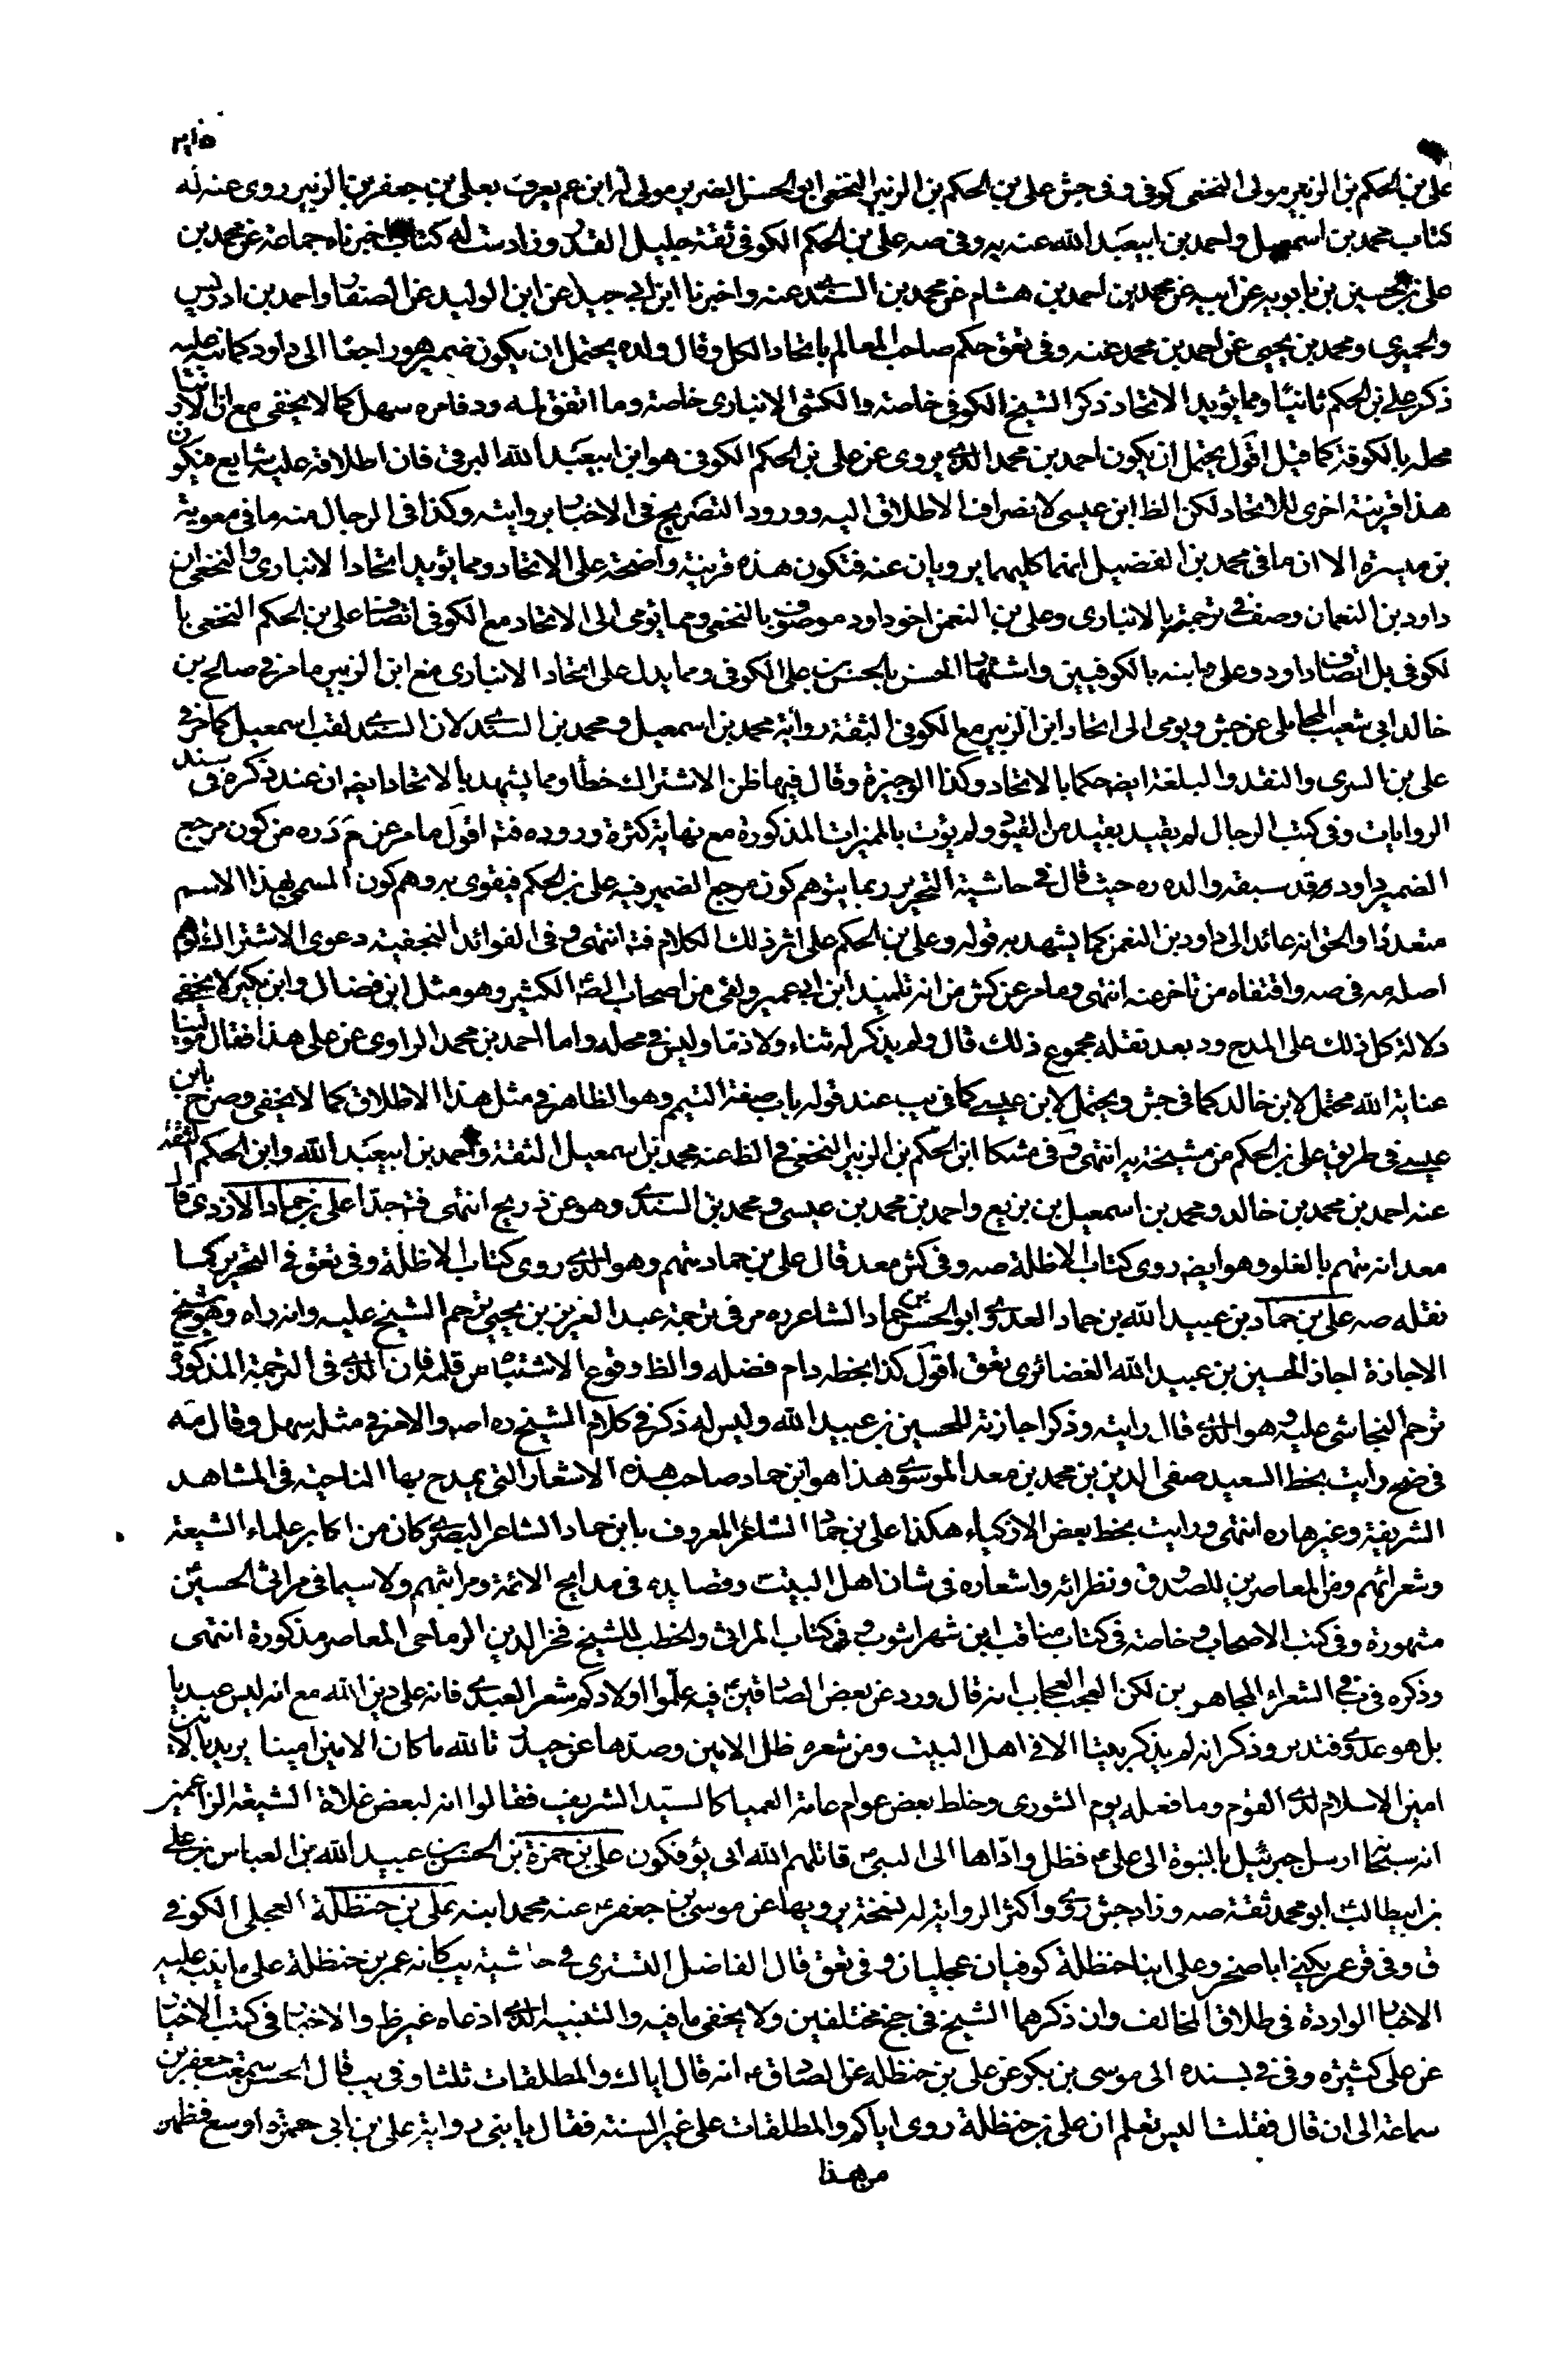 ٢١٥
على بن الحكم بن الزبير مولى النخعى كوفى ق وفى جش على بن الحكم بن الزبير النخعى ابو الحسن الضرير مولى له ابن عم يعرف بعلى بن جعفر بن الزبير روى عنه له
كتاب محمد بن اسمعيل واحمد بن ابيعبد الله عنه به وفى صه على بن الحكم الكوفى ثقة جليل القدر وزاد ست له كتاب اخبرنا به جماعة عن محمد بن
على بن الحسين بن بابويه عن ابيه عن محمد بن احمد بن هشام عن محمد بن السندى عنه واخبرنا ابن ابى جيد عن ابن الوليد عن الصفار واحمد بن ادريس
والحميرى ومحمد بن يحيى عن احمد بن محمد عنه وفى تعق حكم صاحب المعالم باتحاد الكل وقال ولده يحتمل ان يكون ضمير هو راجعا الى داود كما نبه عليه
ذكر على بن الحكم ثانيا ومما يؤيد الاتحاد ذكر الشيخ الكوفى خاصة والكشى الانبارى خاصة وما اتفق له ود فامره سهل كما لا يخفى مع ان الانبار
محله بالكوفة كما قيل اقول يحتمل ان يكون احمد بن محمد الذى يروى عن على بن الحكم الكوفى هو ابن ابيعبد الله البرقى فان اطلاقه عليه شايع فيكون
هذا قرينة اخرى للاتحاد لكن الظ ابن عيسى لانصراف الاطلاق اليه وورود التصريح فى الاخبار بروايته وكذا فى الرجال منه ما فى معوية
بن ميسرة الا ان ما فى محمد بن الفضيل انهما كليهما يرويان عنه فتكون هذه قرينة واضحة على الاتحاد ومما يؤيد اتحاد الانبارى والنخعى ان
داود بن النعمان وصف فى ترجمته بالانبارى وعلى بن النعمن اخو داود موصوف بالنخعى ومما يؤمى الى الاتحاد مع الكوفى اتصاف على بن الحكم النخعى با
لكوفى بل اتصاف داود وعلى وابنه بالكوفيين واشتهار الحسن بالحسن بن على الكوفى ومما يدل على اتحاد الانبارى مع ابن الزبير ما مر فى صالح بن
خالد ابى شعيب المحاملى عن جش ويومى الى اتحاد ابن الزبير مع الكوفى الثقة رواية محمد بن اسمعيل ومحمد بن السندى لان السندى لقب اسمعيل كما مر فى
على بن السرى والنقد والبلغة ايضه حكما بالاتحاد وكذا الوجيزة وقال فيها ظن الاشتراك خطأ ومما يشهد بالاتحاد ايضه ان عند ذكره فى سند
الروايات وفى كتب الرجال لم يقيد بقيد من القيود ولم يؤت بالمميزات المذكورة مع نهاية كثرة وروده فته اقول ما مر عن م د ره من كون مرجع
الضمير داود قد سبقه والده ره حيث قال فى حاشية التحرير ربما يتوهم كون مرجع الضمير فيه على بن الحكم فيقوى به وهم كون المسمى بهذا الاسم
متعددا والحق انه عائد الى داود بن النعمن كما يشهد به قوله وعلى بن الحكم على اثر ذلك الكلام فته انتهى وفى الفوائد النجفية دعوى الاشتراك توهم
اصله مه فى صه واقتفاه من تاخر عنه انتهى وما مر عن كش من انه تلميذ ابن ابى عمير ولقى من اصحاب الصه الكثير وهو مثل ابن فضال وابن بكير لا يخفى
دلالة كل ذلك على المدح ود بعد نقله مجموع ذلك قال ولم يذكر له ثناء ولا ذما وليس فى محله واما احمد بن محمد الراوى عن على هذا فقال مولينا
عناية الله محتمل لابن خالد كما فى جش ويحتمل لابن عيسى كما فى يب عند قوله باب صفة التيمم وهو الظاهر فى مثل هذا الاطلاق كما لا يخفى وصرح بابن
عيسى فى طريق على بن الحكم من مشيخة يه انتهى وفى مشكا ابن الحكم بن الزبير النخعى ق الظ عنه محمد بن اسمعيل الثقة واحمد بن ابيعبد الله وابن الحكم الثقة
عنه احمد بن محمد بن خالد ومحمد بن اسمعيل بن بزيع واحمد بن محمد بن عيسى ومحمد بن السندى وهو عن ذريح انتهى فته جدا على بن حماد الازدى قال
معد انه متهم بالغلو وهو ايضه روى كتاب الاظلة صه وفى كش معد قال على بن حماد متهم وهو الذى روى كتاب الاظلة وفى تعق فى التحرير كما
نقله صه على بن حماد بن عبيد الله بن حماد العدوى ابو الحسن بن حماد الشاعر ره مر فى ترجمة عبد العزيز بن يحيى ترحم الشيخ عليه وانه راه وهو شيخ
الاجازة اجاز الحسين بن عبيد الله الغضائرى تعق اقول كذا بخطه دام فضله والظ وقوع الاشتباه من قلمه فان الذى فى الترجمة المذكورة
ترحم النجاشى عليه وهو الذى قال رايته وذكر اجازته للحسين بن عبيد الله وليس له ذكر فى كلام الشيخ ره اصه والامر فى مثله سهل وقال مه
فى ضح رايت بخط السعيد صفى الدين بن محمد بن معد الموسوى هذا هو ابن حماد صاحب هذه الاشعار التى يمدح بها الناحية فى المشاهد
الشريفة وغيرها ره انتهى ورايت بخط بعض الازكياء هكذا على بن حماد الشاعر المعروف بابن حماد الشاعر البصرى كان من اكابر علماء الشيعة
وشعرائهم ومن المعاصرين للصدوق ونظرائه واشعاره فى شان اهل البيت وقصايده فى مدايح الائمة ومراثيهم ولا سيما فى مراثى الحسين
مشهورة وفى كتب الاصحاب وخاصة فى كتاب مناقب ابن شهراشوب وفى كتاب المراثى والخطب للشيخ فخر الدين الرماحى المعاصر مذكورة انتهى
وذكره فى ب فى الشعراء المجاهرين لكن العجب العجاب انه قال ورد عن بعض الصادقين فيه علموا اولادكم شعر العبدى فانه على دين الله مع انه ليس عبديا
بل هو عدوى فتدبر وذكر انه لم يذكر بيتا الا فى اهل البيت ومن شعره ظل الامين وصدها عن حيدر تالله ما كان الامين امينا يريد بالامين
امين الاسلام لدى القوم وما فعله يوم الشورى وخلط بعض عوام عامة العميا كالسيد الشريف فقالوا انه لبعض غلاة الشيعة الزاعمين
انه سبحانه ارسل جبرئيل بالنبوة الى على ع فظل واداها الى النبى ص قاتلهم الله انى يؤفكون على بن حمزة بن الحسن بن عبيد الله بن العباس بن على
بن ابيطالب ابو محمد ثقة صه وزاد جش روى واكثر الرواية له نسخة يرويها عن موسى بن جعفر ع عنه محمد ابنه على بن حنظلة العجلى الكوفى
ق وفى قر عمر يكنى ابا صخر وعلى ابنا حنظلة كوفيان عجليان وفى تعق قال الفاضل التسترى فى حاشية يب كانه عمر بن حنظلة على ما ينبه عليه
الاخبار الواردة فى طلاق المخالف وان ذكرهما الشيخ فى جخ مختلفين ولا يخفى ما فيه والتنبيه الذى ادعاه غير ظ والاخبار فى كتب الاخبار
عن على كثيرة وفى فى بسنده الى موسى بن بكر عن على بن حنظلة عن الصادق ع انه قال اياك والمطلقات ثلثا وفى يب قال الحسن سمعت جعفر بن
سماعة الى ان قال فقلت اليس تعلم ان على بن حنظلة روى اياكم والمطلقات على غير السنة فقال يا بنى رواية على بن ابى حمزة اوسع فظهر
من هذا